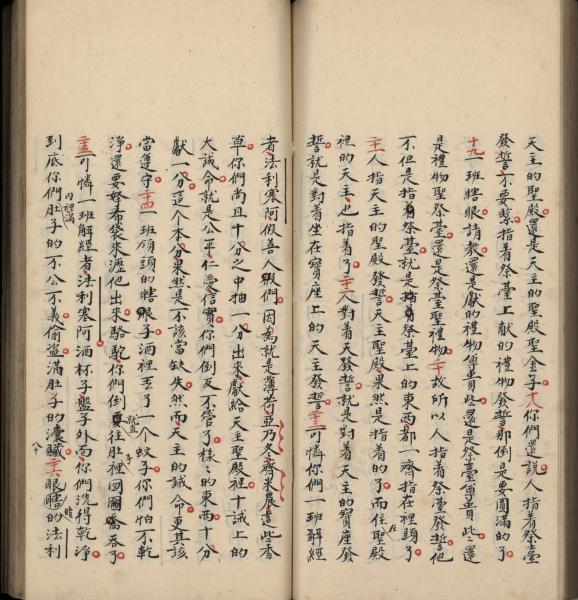 天主的聖殿還是天主的聖殿聖金子十八你們還說人指着祭臺
發誓不要緊指着祭臺上献的禮物發誓那倒是要圓滿的了
十九一班瞎眼請教還是献的禮物尊貴些還是祭臺尊貴些還
是禮物聖祭臺還是祭臺聖禮物二十故所以人指着祭臺發誓他
不但是指着祭臺就是指着祭臺上的東西都一齊指在裡頭了
二一人指天主的聖殿發誓天主聖殿果然是指着的了而住在聖殿
裡的天主也指着了二二人對着天發誓就是對着天主的寳座發
誓就是對着坐在寳座上的天主發誓二三可憐你們一班解經
者法利塞阿假善人㑥們因為就是薄荷亞乃冬薺米農這些香
草你們尚且十分之中抽一分出來獻給天主聖殿裡十誡上的
大誡命就是公平仁愛信實你們倒反不害了樣〻的東西十分
献一分這个本分果然是不該當缺失然而天主的誡命更其該
當遵守二四一班領頭的瞎眼子酒裡丟了一個蚊子你們怕不乾
淨還要好布袋來瀝他出來駱駝你們倒要就直往肚子裡囫圇吞了
二五可憐一班解經者法利塞阿酒杯子盤子外面你們洗得乾淨
到底你們肚子內裡滿的不公不義偷盜滿肚子的濃贓二六眼瞎的法利
八十